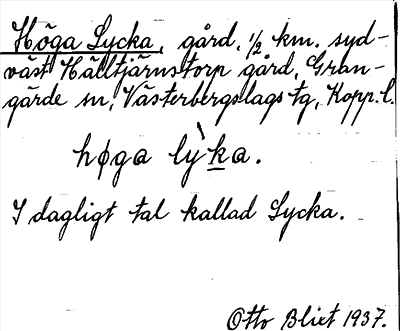 Höga Lycka, gård, ½ km. syd-
väst Hälltjärnstorp gård, Gran-
gärde sn, Västerbergslags tg, Kopp. l.
høga lỳka.
I dagligt tal kallad Lycka.
Otto Blixt 1937.